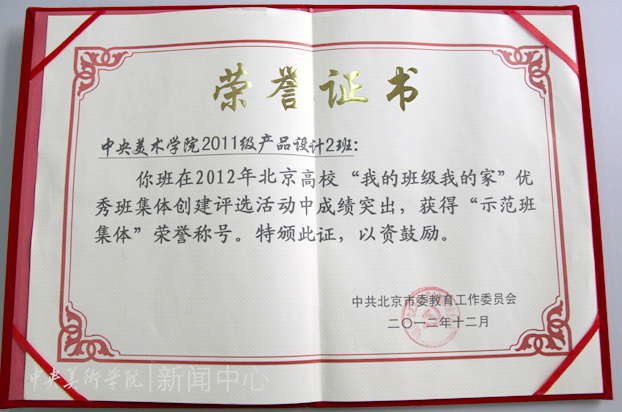 荣誉证书
中央美术学院2011级产品设计2班：
你班在2012年北京高校“我的班级我的家”优
秀班集体创建评选活动中成绩突出，获得“示范班
集体”荣誉称号。特颁此证，以资鼓励。
中共北京市委教育工作委员会
二〇一二年十二月
中央美術学院|新闻中心